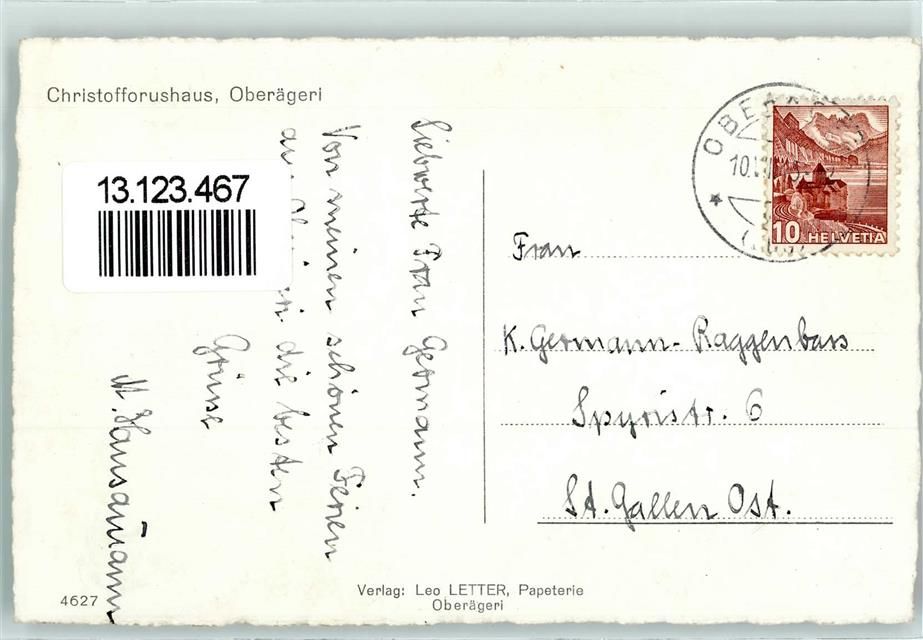 Christofforushaus, Oberägeri
13.123.467
Liebwerte Frau Germann.
Von meinen schönen Ferien
die besten
Grüsse
M. Hansamann
10 HELVETIA
Frau
K. Germann-Raggenbass
Spyristr. 6
St. Gallen Ost.
4627
Verlag: Leo LETTER, Papeterie
Oberägeri